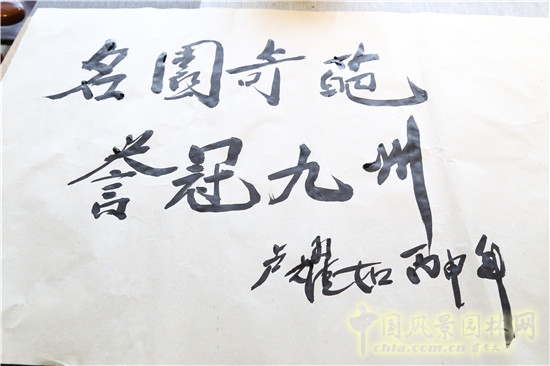 名園奇葩
誉冠九州
卢耀如 丙申年
中国风景园林网
chla.com.cn